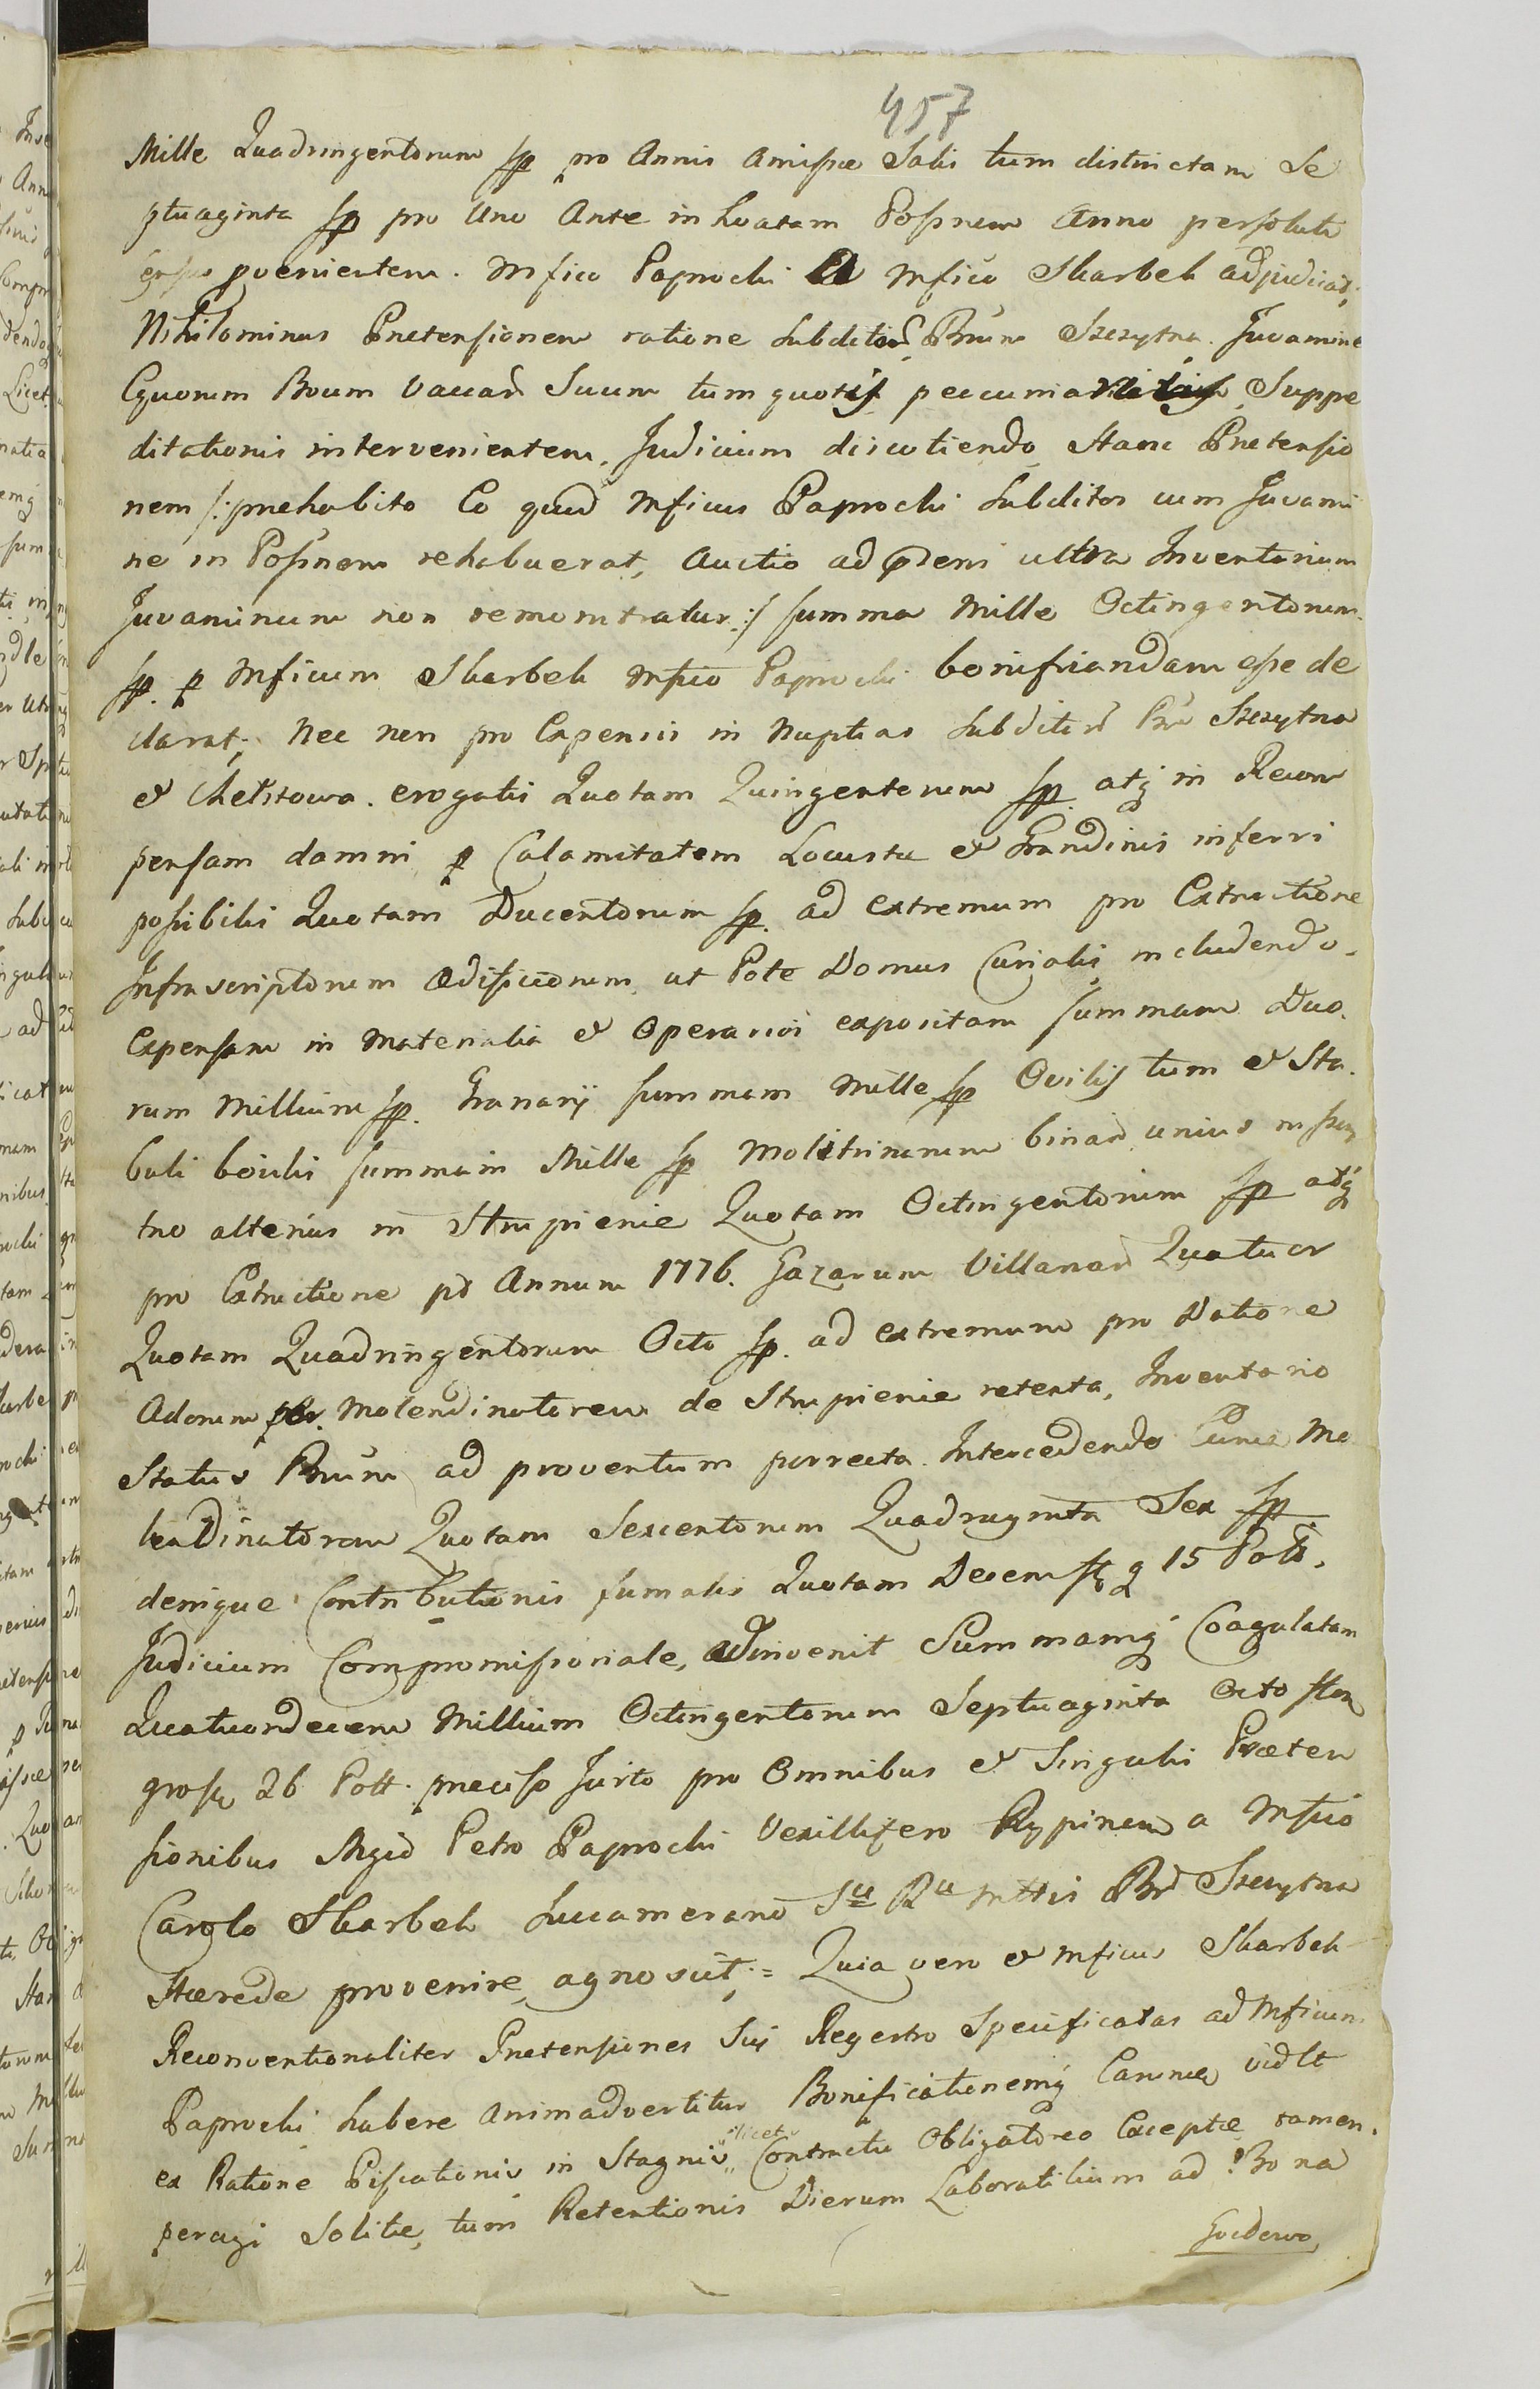 457
Mille Quadringentorum fp pro Annis Amissæ Salis tum distinctam Se
ptuaginta fp pro Uno Ante inhoatam Possnem Anno persoluti
proenientem. Mfico Paprocki A Mfico Skarbek adjudicat;
Nihilominus Prætensionem ratione Subditor̃ Bnũm Szczytna. Juvamine
Equorum Boum Vaccar̃ Suum tum quotis Suppe
ditationis intervenientem, Judicium discutiendo, Hanc Prætensio
nem /: præhabito Eo quod Mficus Paprocki Subditos cum Juvami
ne in Possnem rehabuerat, Auctio adæqdem ultra Inventarium
Juvaminum non remonstratur :/ summa Mille Octingentorum
fp. p Mficum Skarbek Mfico Paprocki bonifiandam esse de
clarat; Nec non pro Expensis in Nuptias Subditor̃ Bnũ Szczytna
& Chelstowa. erogatis Quotam Quingentorum fp. atq in Recom
pensam damni p Calamitatem Locustæ & Grandinis inferri
possibilis Quotam Ducentorum fp. ad extremum pro Extructione
Infrascriptorum Ædificiorum, ut Pote Domus Curialis includendo.
Expensam in Materialia & Operarios expositam summam Duo.
rum Millium fp. Granarij summam Mille fp Ovilis tum & Sta.
buli boilis summam Mille fp Molitrinarum binar̃ unius in
tno alterius in Strupienie Quotam Octingentorum fp atq
pro Extructione pt Annum 1776. Gazarum Villanar̃ Quatuor
Quotam Quadringentorum Octo fp. ad extremum pro Ratione
Adorum per. Molendinatorem de Strupienie retenta, Inventario
Status Bnũm ad proventum porrecta. Intercedendo Cum Mo
lendinatorem Quotam Sexcentorum Quadraginta Sex fp.
denique Contributionis fumalis Quotam Decem fl g 15 Polt.
Judicium Compromissoriale, adinvenit Summamq Coagulatam
Quatuordecem Millium Octingentorum Septuaginta Octo flor
gross 26 Polt. præciso Jurto pro Omnibus & Singulis Præten
sionibus Mgco Petro Paprocki Vexillifero Rypinen̄ a Mfico
Carolo Skarbek Succamerario Sæ Ræ Mttis Bnr̃ Szczytna
Hærede provenire, agnoscit; = Quia vero & Mficus Skarbek
Reconventionaliter Prætensiones Suj Regestro Specificatas ad Mficum
Paprocki habere animadvertitur Bonificationemq Canonæ vidlt
ex Ratione Piscationis in Stagnis, licet Contractu Obligatoreo Exceptæ tamen.
peragi Solitæ, tum Retentionis Dierum Laboratilium ad Bona